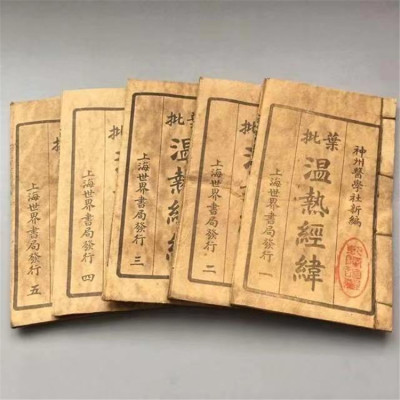 神州醫學社新編
葉批
温熱經緯
上海世界書局發行
一
批
温
上海世界書局發行
二
批
温熱經緯
上海世界書局發行
三
批
温
上海世界書局發行
四
批
上海世界書局發行
五